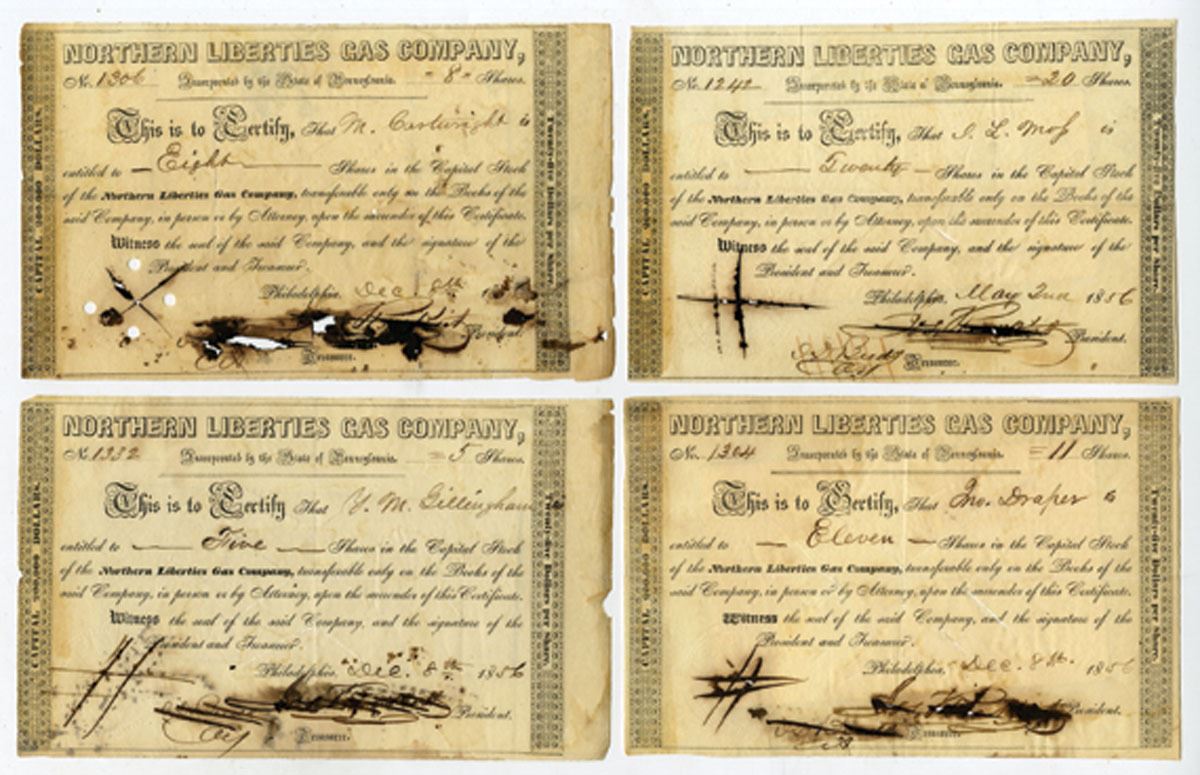 NORTHERN LIBERTIES GAS COMPANY,
No. 1306 Incorporated by the State of Pennsylvania. = 8 = Shares.
This is to Certify, That M. Cartwright is
entitled to — Eight — Shares in the Capital Stock
of the Northern Liberties Gas Company, transferable only on the Books of the
said Company, in person or by Attorney, upon the surrender of this Certificate.
Witness the seal of the said Company, and the signature of the
President and Treasurer.
Philadelphia, Dec. 8th
President.
Treasurer.
CAPITAL 200,000 DOLLARS.
Twenty-five Dollars per Share.
NORTHERN LIBERTIES GAS COMPANY,
No. 1242 Incorporated by the State of Pennsylvania. = 20 Shares.
This is to Certify, That J. L. Moss is
entitled to — Twenty — Shares in the Capital Stock
of the Northern Liberties Gas Company, transferable only on the Books of the
said Company, in person or by Attorney, upon the surrender of this Certificate.
Witness the seal of the said Company, and the signature of the
President and Treasurer.
Philadelphia, May 2nd 1856
President.
Treasurer.
CAPITAL 200,000 DOLLARS.
Twenty-five Dollars per Share.
NORTHERN LIBERTIES GAS COMPANY,
No. 1332 Incorporated by the State of Pennsylvania. = 5 Shares.
This is to Certify That Y. M. Gillingham is
entitled to — Five — Shares in the Capital Stock
of the Northern Liberties Gas Company, transferable only on the Books of the
said Company, in person or by Attorney, upon the surrender of this Certificate.
Witness the seal of the said Company, and the signature of the
President and Treasurer.
Philadelphia, Dec. 8th 1856
President.
Treasurer.
CAPITAL 200,000 DOLLARS.
Twenty-five Dollars per Share.
NORTHERN LIBERTIES GAS COMPANY,
No. 1304 Incorporated by the State of Pennsylvania. = 11 Shares.
This is to Certify, That Jno. Draper is
entitled to — Eleven — Shares in the Capital Stock
of the Northern Liberties Gas Company, transferable only on the Books of the
said Company, in person or by Attorney, upon the surrender of this Certificate.
Witness the seal of the said Company, and the signature of the
President and Treasurer.
Philadelphia, Dec. 8th 1856
President.
Treasurer.
CAPITAL 200,000 DOLLARS.
Twenty-five Dollars per Share.